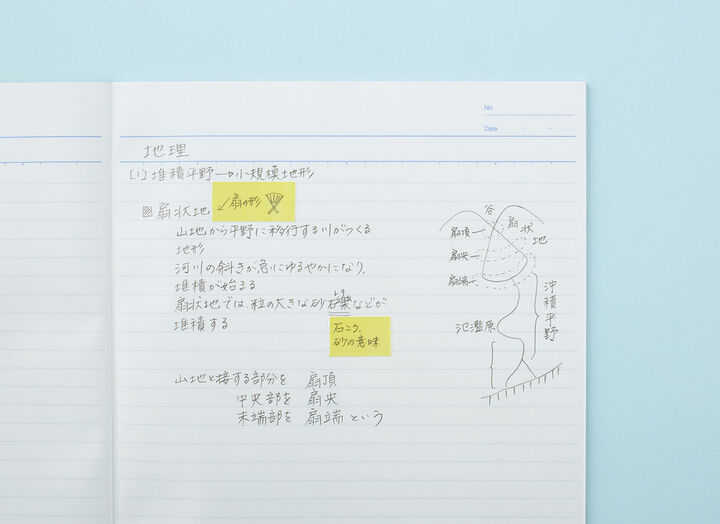 No.
Date
地理
[1] 堆積平野→小規模地形
扇状地
↙扇の形
山地から平野に移行する川がつくる
地形
河川の斜きが急にゆるやかになり、
堆積が始まる
扇状地では、粒の大きな砂礫などが
れき
堆積する
石ころ、
砂の意味
山地と接する部分を 扇頂
中央部を 扇央
末端部を 扇端 という
谷
扇状地
扇頂
扇央
扇端
氾濫原
沖積平野